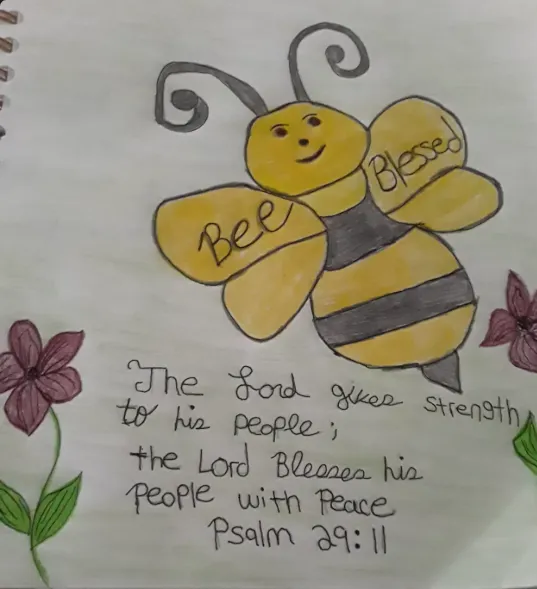 Bee
Blessed
The Lord gives strength
to his people;
the Lord Blesses his
people with Peace
Psalm 29:11